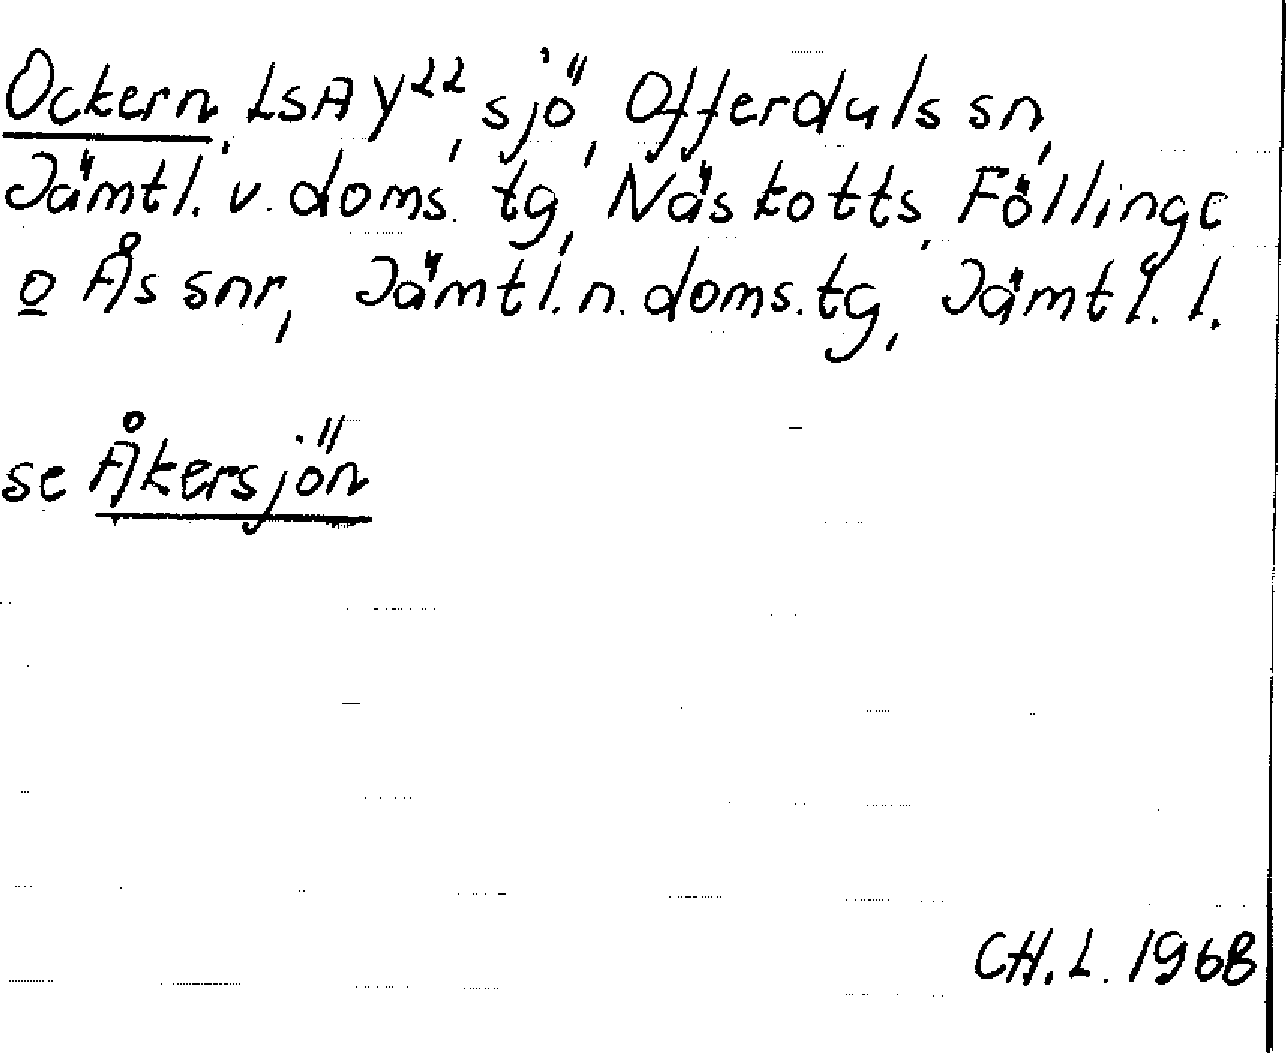 Ockern, LSA Y²², sjö, Offerdals sn,
Jämtl. v. doms. tg, Näskotts, Föllinge
o Ås snr, Jämtl. n. doms. tg, Jämtl. l.
se Åkersjön
CH. L. 1968